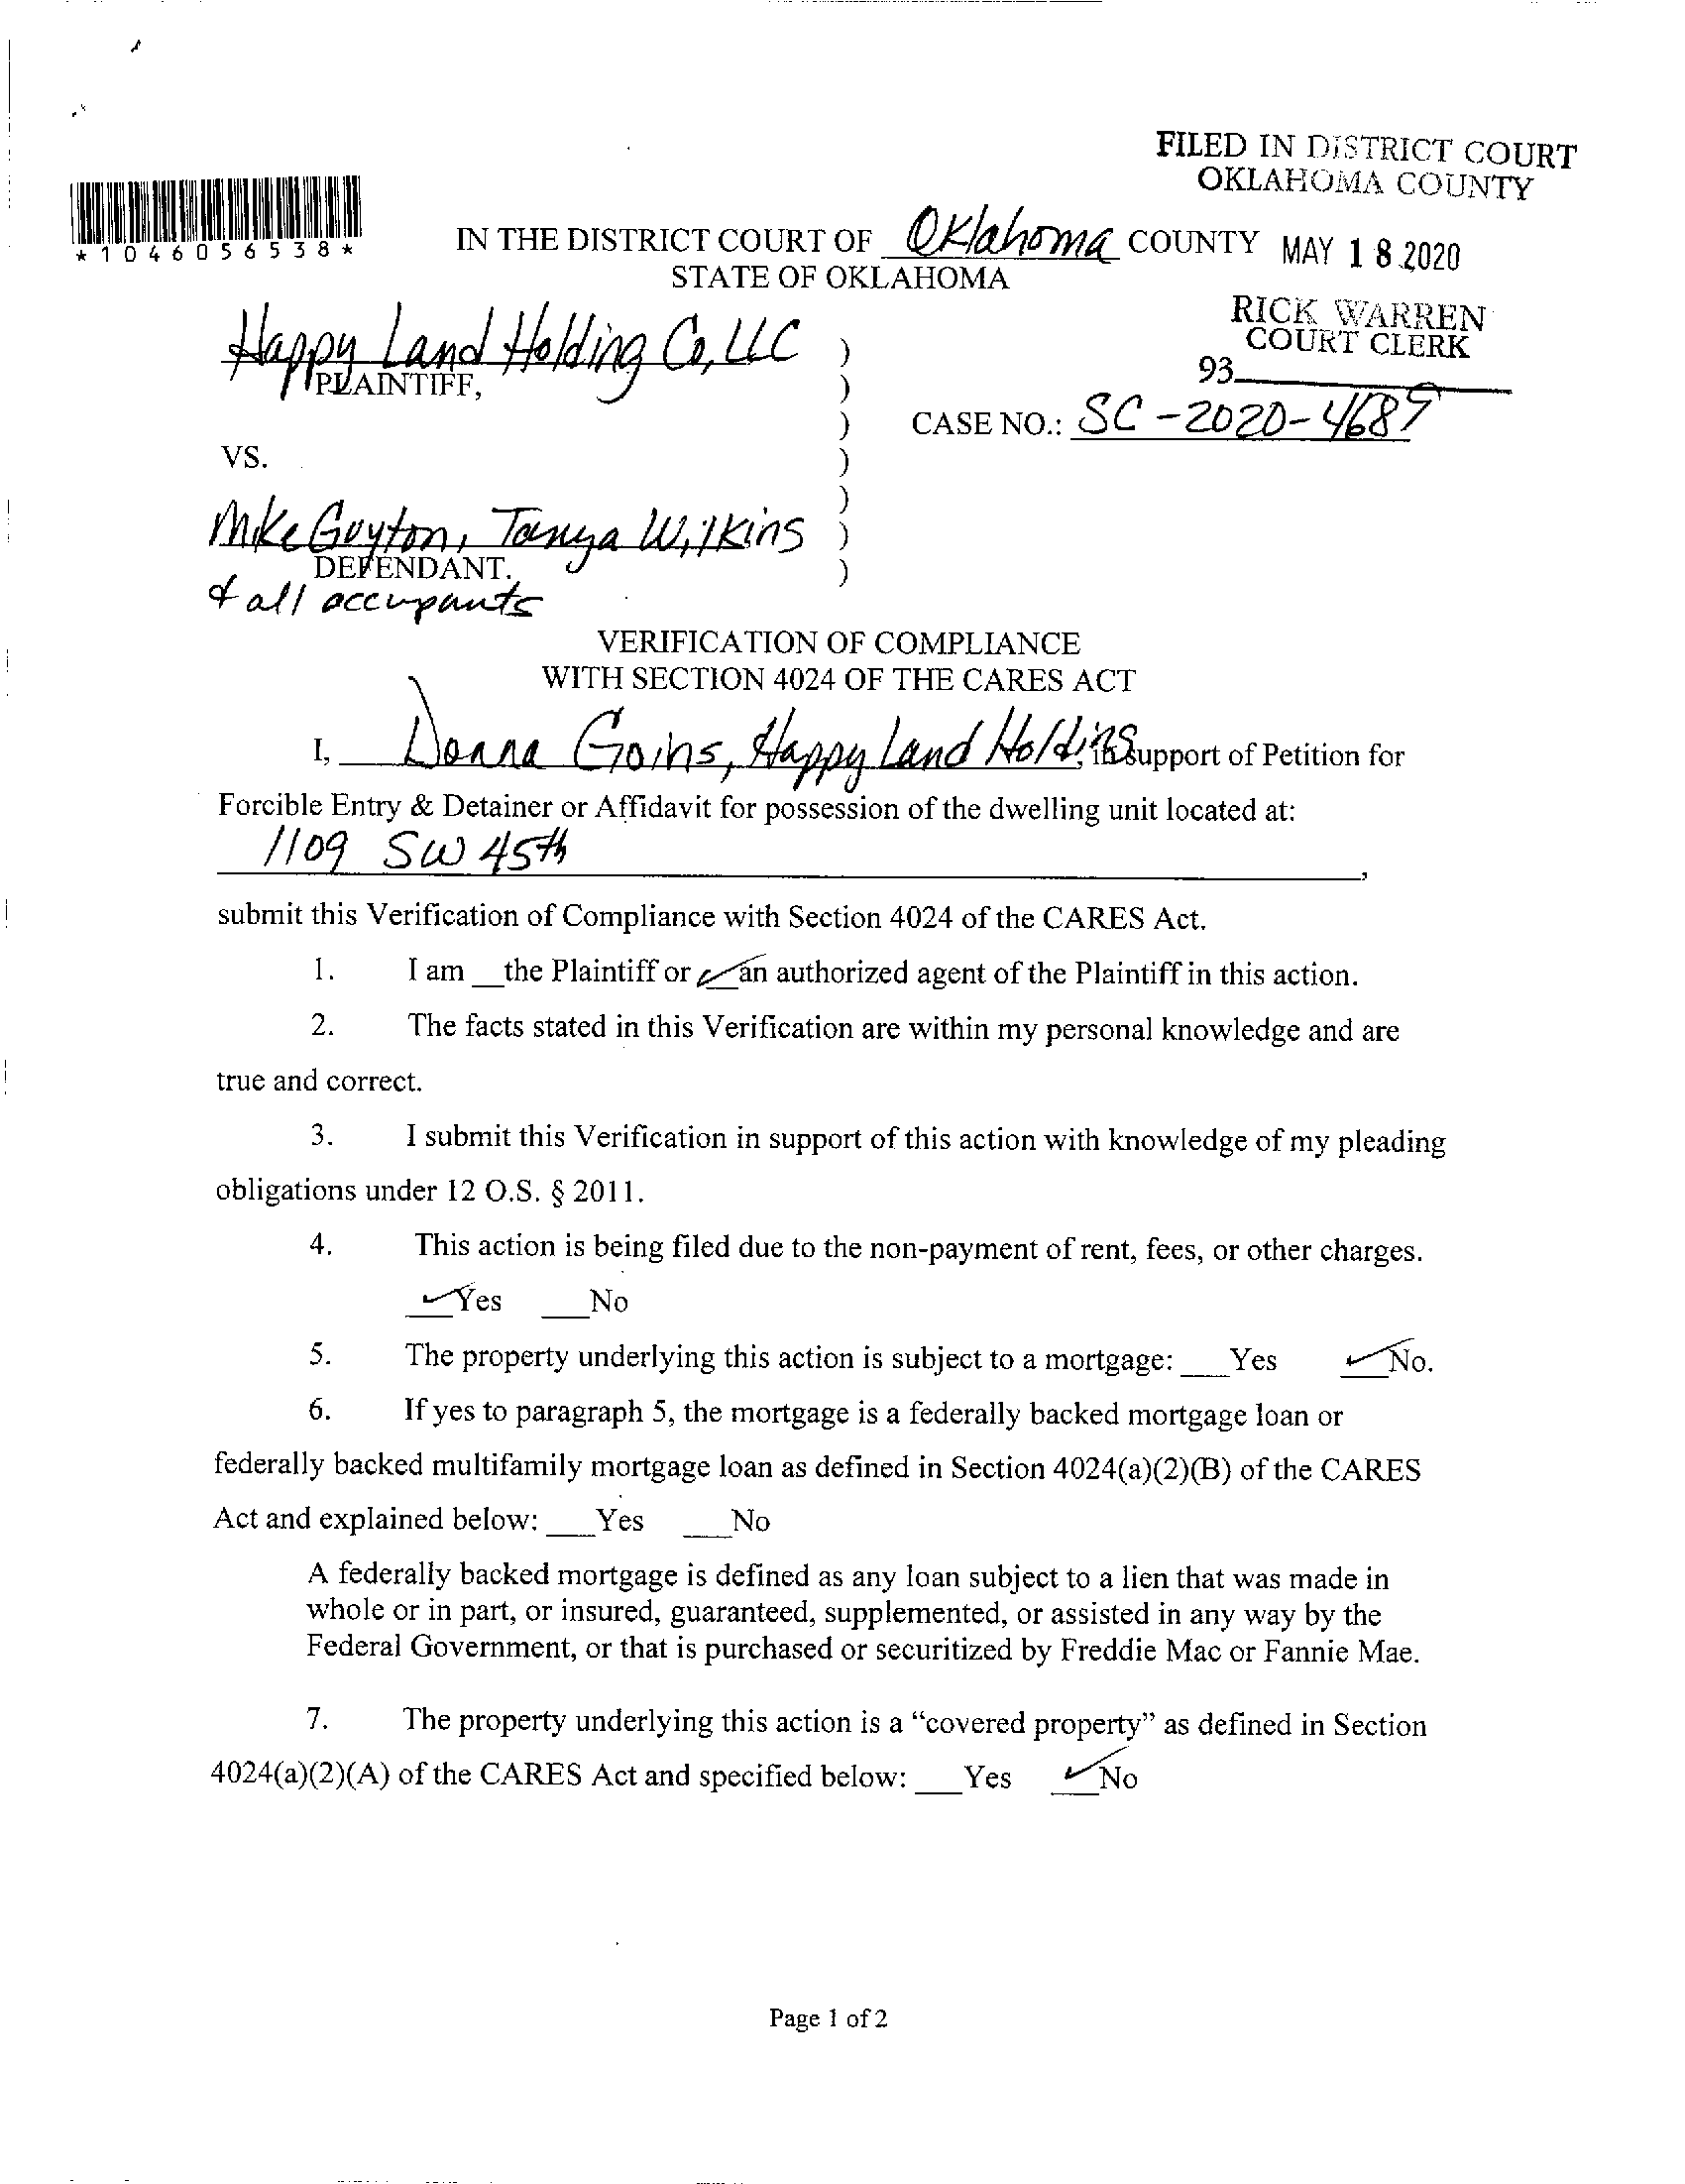 FILED IN DISTRICT COURT
OKLAHOMA COUNTY
*1046056538*
IN THE DISTRICT COURT OF Oklahoma COUNTY MAY 18 2020
STATE OF OKLAHOMA
RICK WARREN
COURT CLERK
93
Happy Land Holding Co, LLC )
PLAINTIFF, )
) CASE NO.: SC-2020-4689
VS. )
)
Mike Guyton, Tanya Wilkins )
DEFENDANT. )
& all occupants
VERIFICATION OF COMPLIANCE
WITH SECTION 4024 OF THE CARES ACT
I, Donna Goins, Happy Land Holding, in support of Petition for
Forcible Entry & Detainer or Affidavit for possession of the dwelling unit located at:
1109 SW 45th ,
submit this Verification of Compliance with Section 4024 of the CARES Act.
1. I am __the Plaintiff or ✓an authorized agent of the Plaintiff in this action.
2. The facts stated in this Verification are within my personal knowledge and are
true and correct.
3. I submit this Verification in support of this action with knowledge of my pleading
obligations under 12 O.S. § 2011.
4. This action is being filed due to the non-payment of rent, fees, or other charges.
✓Yes ___No
5. The property underlying this action is subject to a mortgage: ___Yes ✓No.
6. If yes to paragraph 5, the mortgage is a federally backed mortgage loan or
federally backed multifamily mortgage loan as defined in Section 4024(a)(2)(B) of the CARES
Act and explained below: ___Yes ___No
A federally backed mortgage is defined as any loan subject to a lien that was made in
whole or in part, or insured, guaranteed, supplemented, or assisted in any way by the
Federal Government, or that is purchased or securitized by Freddie Mac or Fannie Mae.
7. The property underlying this action is a “covered property” as defined in Section
4024(a)(2)(A) of the CARES Act and specified below: ___Yes ✓No
Page 1 of 2